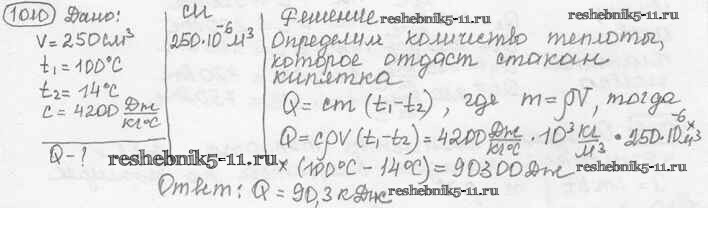 1010 Дано:
V = 250 см³
t₁ = 100°C
t₂ = 14°C
c = 4200 Дж/кг°C
Q - ?
СИ
250·10⁻⁶ м³
Решение
reshebnik5-11.ru
Определим количество теплоты,
которое отдаст стакан
кипятка
reshebnik5-11.ru
Q = cm (t₁-t₂), где m = ρV, тогда
Q = cρV (t₁-t₂) = 4200 Дж/кг°C · 10³ кг/м³ · 250·10⁻⁶ м³ ×
reshebnik5-11.ru
× (100°C - 14°C) = 90300 Дж
Ответ: Q = 90,3 кДж
reshebnik5-11.ru